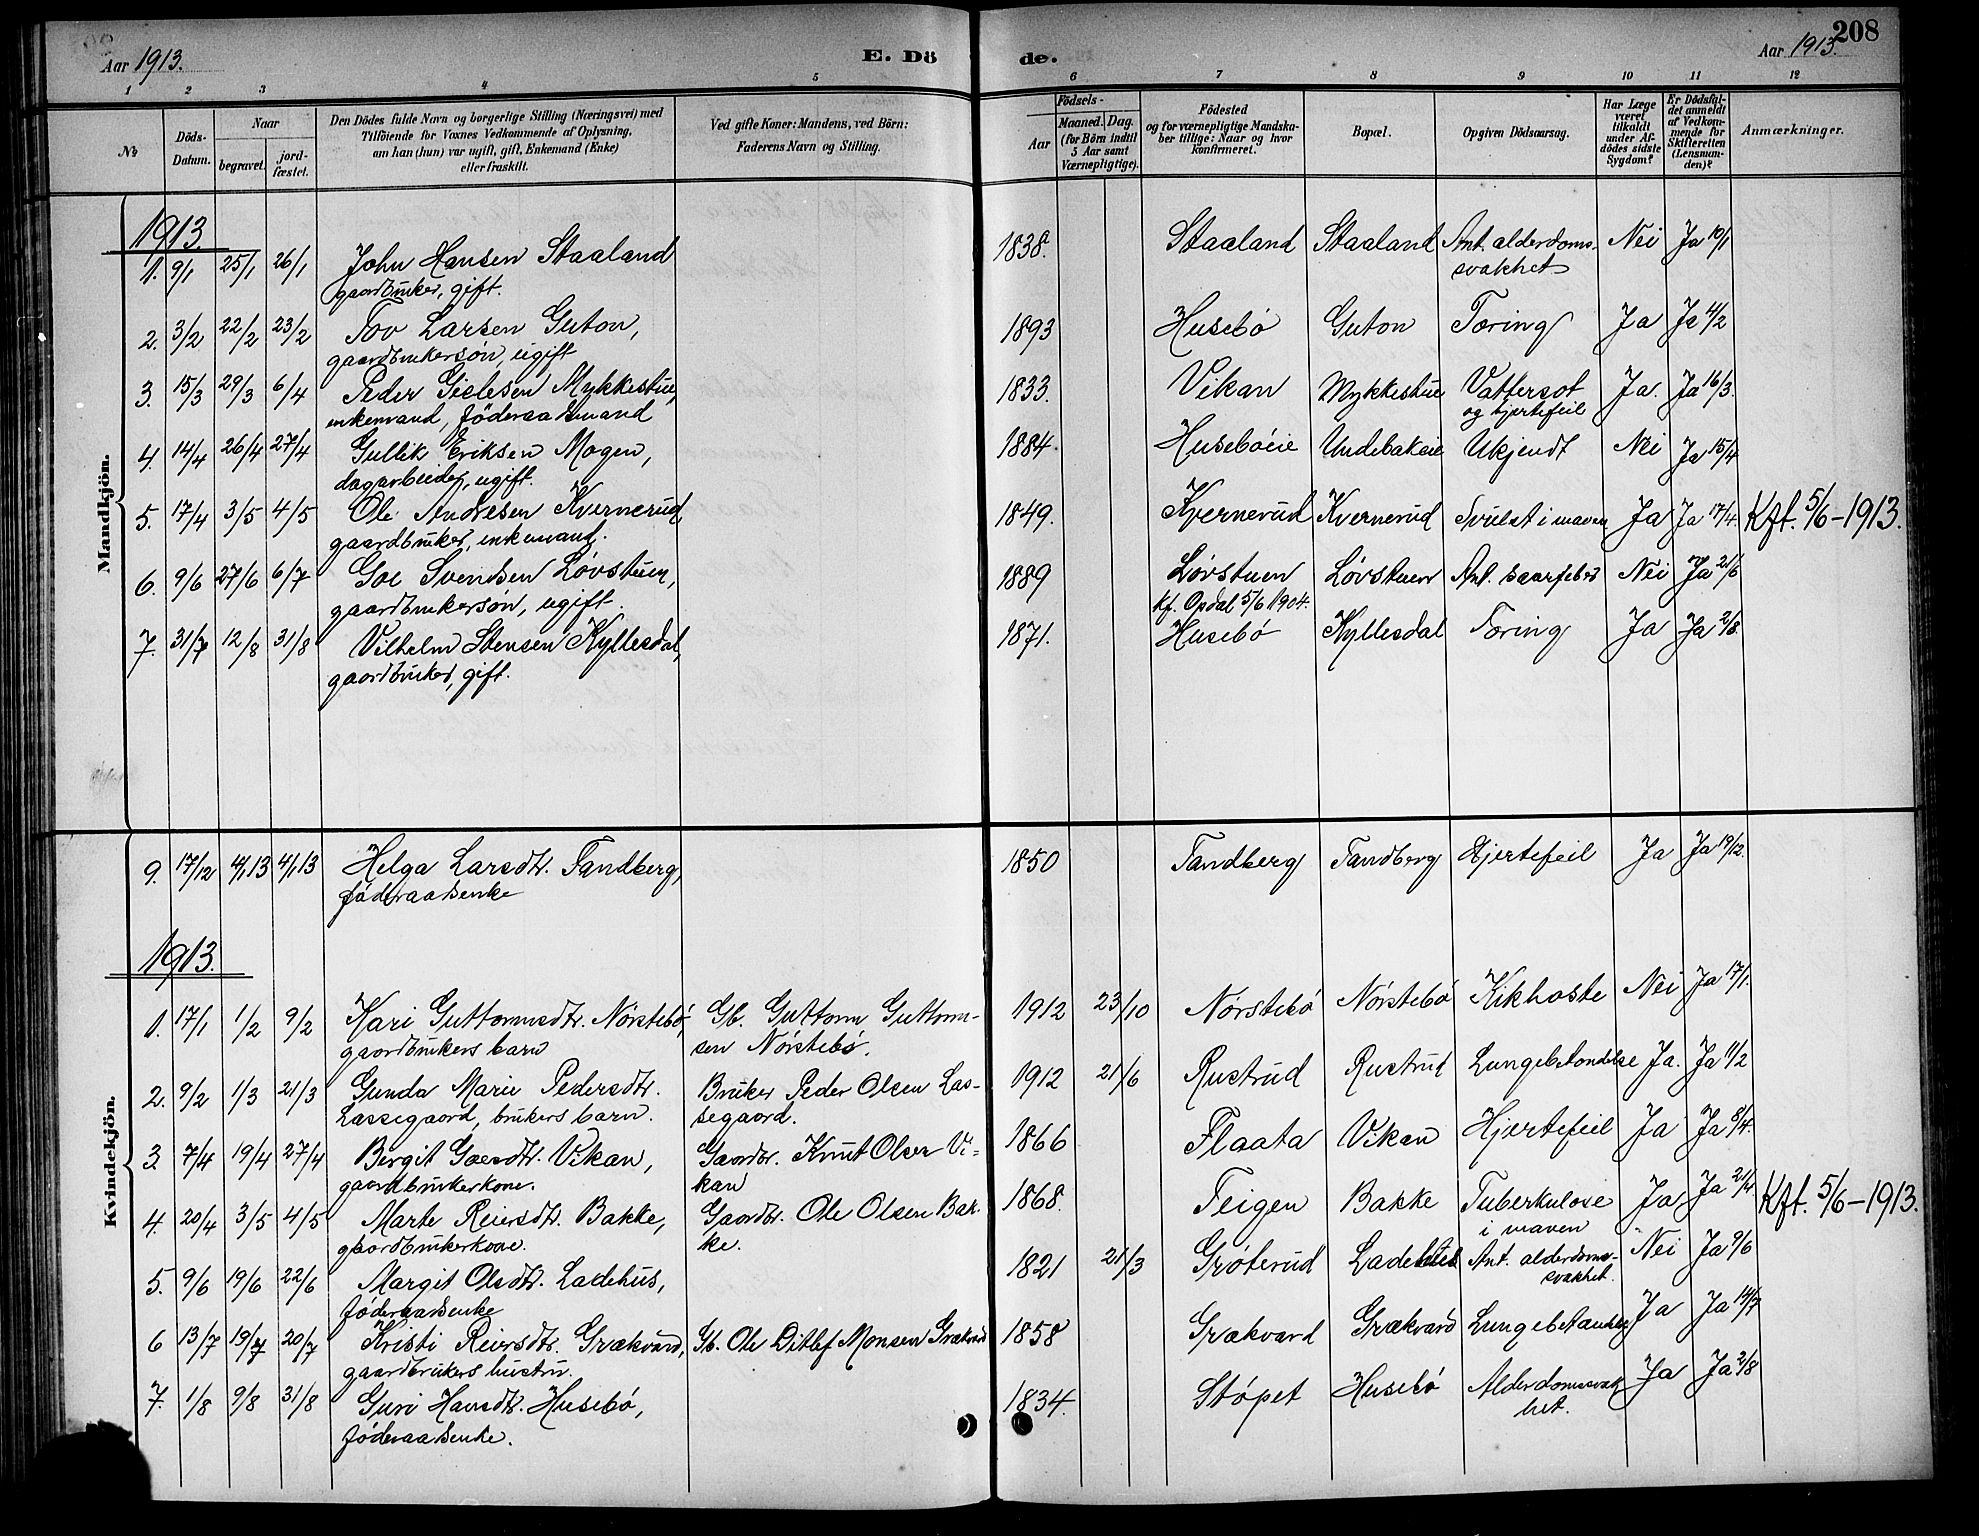 Aar 1913.
E. Dö
de.
Aar 1913.
208
1 2 3 4 5 6 7 8 9 10 11 12
№
Döds-Datum.
Naar
begravet.
jord-fæstet.
Den Dödes fulde Navn og borgerlige Stilling (Næringsvei) med
Tilföiende for Voxnes Vedkommende af Oplysning,
om han (hun) var ugift, gift, Enkemand (Enke)
eller fraskilt.
Ved gifte Koner: Mandens, ved Börn:
Faderens Navn og Stilling.
Födsels-
Aar
Maaned. Dag.
(for Börn indtil
5 Aar samt
Værnepligtige).
Födested
og for værnepligtige Mandska-
ber tillige: Naar og hvor
konfirmeret.
Bopæl.
Opgiven Dödsaarsag.
Har Læge
været
tilkaldt
under Af-
dödes sidste
Sygdom?
Er Dödsfal-
det anmeldt
af Vedkom-
mende for
Skifteretten
(Lensman-
den)?
Anmærkninger.
Mandkjön.
1913.
1. 9/1 25/1 26/1 John Hansen Staaland 1838. Staaland Staaland Ant. alderdoms- Nei Ja 10/1
gaardbruker, gift. svakhet
2. 3/2 22/2 23/2 Tov Larsen Guton, 1893 Husebö Guton Tæring Ja Ja 4/2
gaardbrukersön, ugift
3. 15/3 29/3 6/4 Peder Gislesen Mykkestue, 1833. Vikan Mykkestue Vattersot Ja. Ja 16/3.
enkemand, föderaadsmand og hjertefeil
4. 14/4 26/4 27/4 Gullik Eriksen Mogen, 1884. Huseböeie Undebakeie Ukjendt Nei Ja 15/4
dagarbeider, ugift.
5. 17/4 3/5 4/5 Ole Andresen Kvernerud, 1849. Kvernerud Kvernerud Svulst i maven Ja Ja 17/4 Kft. 5/6-1913.
gaardbruker, enkemand.
6. 9/6 27/6 6/7 Goe Svendsen Lövstuen, 1889 Lövstuen Lövstuen Ant. Nei Ja 21/6
gaardbrukersön, ugift. Kf. Opdal 5/6 1904.
7. 31/7 12/8 31/8 Vilhelm Stensen Kyllesdal, 1871. Husebö Kyllesdal Tæring Ja Ja 2/8.
gaardbruker, gift.
Kvindekjön.
9. 17/12 4/1 13 4/1 13 Helga Larsdtr. Tandberg, 1850 Tandberg Tandberg Hjertefeil Ja Ja 19/12.
föderaadsenke
1913.
1. 17/1 1/2 9/2 Kari Guttormsdtr. Nörstebö, Gb. Guttorm Guttorm- 1912 23/10 Nörstebö Nörstebö Kikhoste Nei Ja 17/1.
gaardbrukers barn sen Nörstebö.
2. 9/2 1/3 21/3 Gunda Marie Pedersdtr. Bruker Peder Olsen Las- 1912 21/6 Rustrud Rustrud Lungebetændelse Ja. Ja 11/2
Lassegaard, brukers barn. segaard.
3. 7/4 19/4 27/4 Bergit Goesdtr. Vikan, Gaardbr. Knut Olsen Vi- 1866 Flaata Vikan Hjertefeil Ja Ja 8/4.
gaardbrukerkone. kan
4. 20/4 3/5 4/5 Marte Reiersdtr. Bakke, Gaardbr. Ole Olsen Bak- 1868. Feigen Bakke Tuberkulose Ja Ja 21/4. Kft. 5/6-1913.
gaardbrukerkone. ke. i maven
5. 9/6 19/6 22/6 Margit Olsdtr. Ladehus, 1821 21/3 Gröterud Ladehus Ant. alderdoms- Nei Ja 9/6
föderaadsenke svakhet.
6 13/7 19/7 20/7 Kristi Reiersdtr. Grækvard, Gb. Ole Ditlef Monsen Grækvard 1858 Grækvard Grækvard Lungebetændelse Ja Ja 14/7
gaardbrukers hustru.
7. 1/8 9/8 31/8 Guri Hansdtr. Husebö, 1834. Stöpet Husebö Alderdomssvak Ja Ja 2/8
föderaadsenke. het.